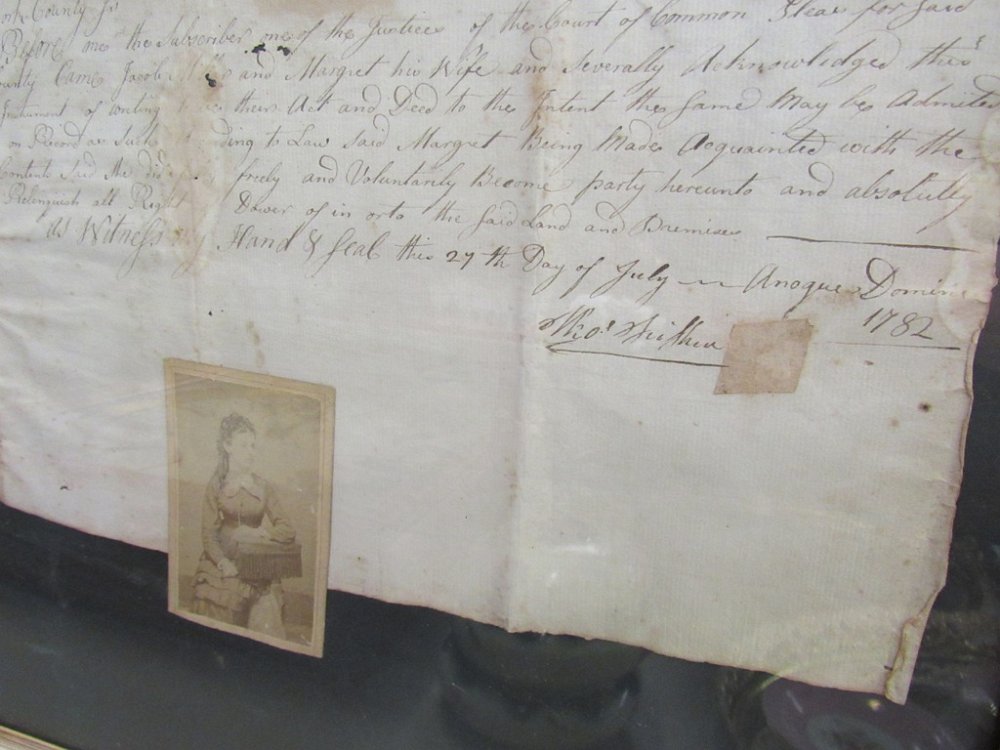 County Ss
Before me the Subscriber one of the Justices of the Court of Common Pleas for Said
County Came Jacob and Margret his Wife and Severally Acknowledged this
Instrument of writing their Act and Deed to the Intent the Same May be Admited
on Record as Such to Law Said Margret Being Made Acquainted with the
Contents Said She did freely and Voluntarily Become party hereunto and absolutly
Relinquish all Right Dower of in or to the Said Land and Premises
As Witness my Hand & Seal this 27th Day of July Anoque Domini
Thos. 1782